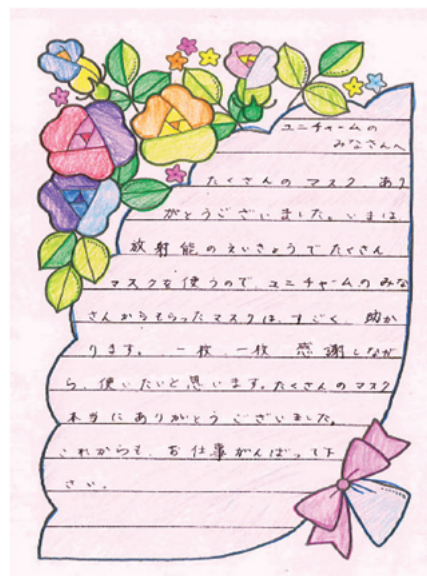 ユニチャームの
みなさんへ
たくさんの マスク、あり
がとうございました。いまは
放射能のえいきょうでたくさん
マスクを使うので、ユニチャームのみな
さんからもらったマスクは、すごく、助か
ります。一枚、一枚 感謝しなが
ら、使いたいと思います。たくさんのマスク
本当にありがとうございました。
これからも、お仕事がんばって下
さい。